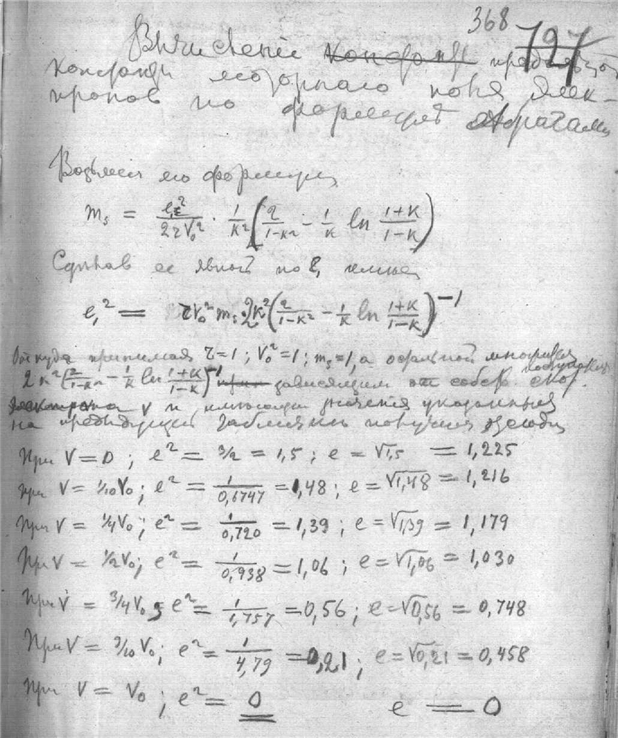 368 727
Вычисленiе предѣльной
константы моторнаго поля элек-
троновъ по формулѣ Абрагама
Возьмемъ его формулу
m_s = e_1²/(2rV_0²) · 1/K² (2/(1-K²) - 1/K ln (1+K)/(1-K))
Сдѣлавъ ее явной по e,
e_1² = rV_0² m_s · 2K² (2/(1-K²) - 1/K ln (1+K)/(1-K))⁻¹
Откуда принимая r=1; V_0²=1; m_s=1, а остальной множитель
2K² (2/(1-K²) - 1/K ln (1+K)/(1-K))⁻¹ зависящим от
V и имѣющим значенiя указанныя
на предыдущей получим
При V = 0; e² = 3/2 = 1,5; e = √1,5 = 1,225
при V = 1/10 V_0; e² = 1/0,6747 = 1,48; e = √1,48 = 1,216
при V = 1/4 V_0; e² = 1/0,720 = 1,39; e = √1,39 = 1,179
При V = 1/2 V_0; e² = 1/0,938 = 1,06; e = √1,06 = 1,030
При V = 3/4 V_0; e² = 1/1,757 = 0,56; e = √0,56 = 0,748
При V = 9/10 V_0; e² = 1/4,79 = 0,21; e = √0,21 = 0,458
при V = V_0; e² = 0 e = 0